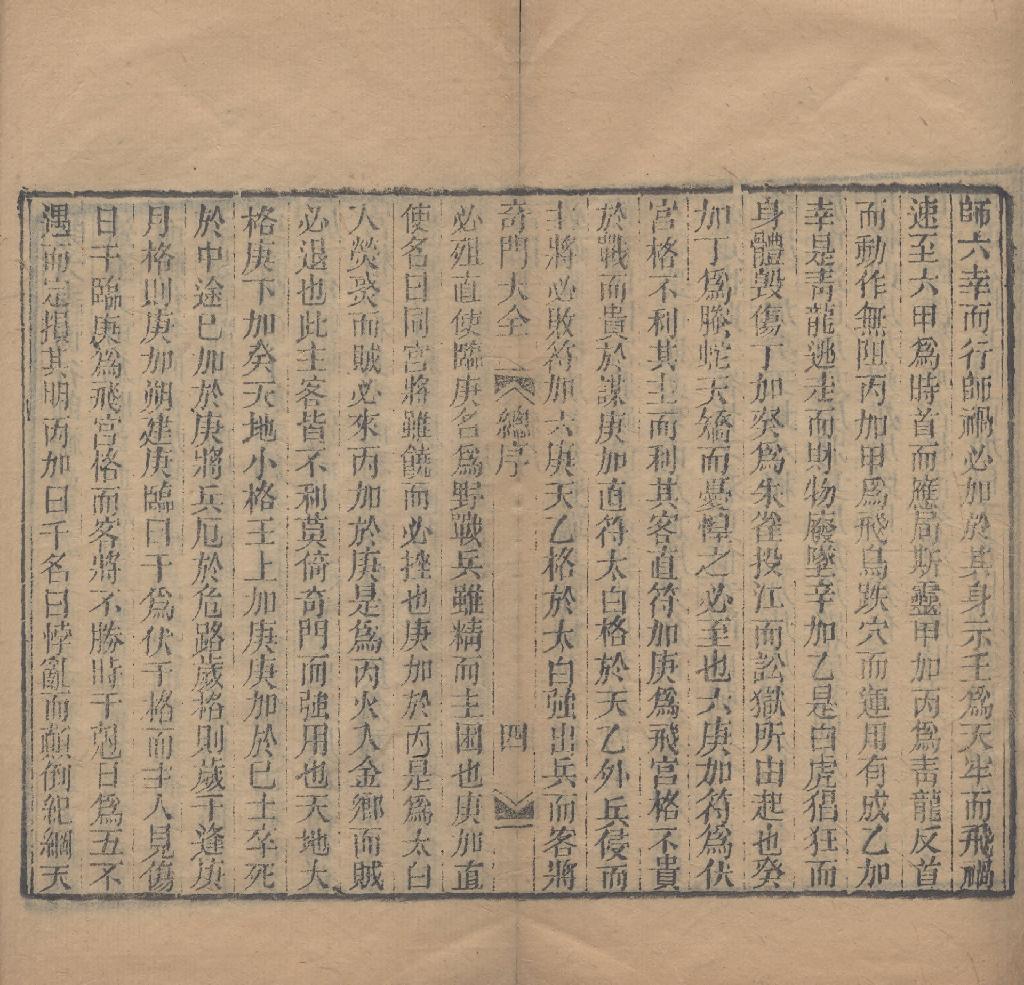 師六幸而行師禍必加於其身示王爲天牢而飛禍
速至六甲爲時首而應局斯靈甲加丙爲靑龍反首
而動作無阻丙加甲爲飛鳥跌穴而運用有成乙加
幸是靑龍逃走而財物廢墜幸加乙是白虎猖狂而
身體毀傷丁加癸爲朱雀投江而訟獄所由起也癸
加丁爲螣蛇夭矯而憂惶之必至也六庚加符爲伏
宮格不利其主而利其客直符加庚爲飛宮格不貴
於戰而貴於謀庚加直符太白格於天乙外兵侵而
主將必敗符加六庚天乙格於太白強出兵而客將
奇門大全 總序 四
必殂直使臨庚名爲野戰兵雖精而主困也庚加直
使名曰同宮將雖饒而必挫也庚加於丙是爲太白
入熒熒而賊必來丙加於庚是爲丙火入金鄉而賊
必退也此主客皆不利莫倚奇門而強用也天地大
格庚下加癸天地小格壬上加庚庚加於巳士卒死
於中途巳加於庚將兵厄於危路歲格則歲干逢庚
月格則庚加朔建庚臨日干爲伏干格而主人見傷
日干臨庚爲飛宮格而客將不勝時干剋日爲五不
遇而定損其明丙加日千名曰悖亂而顛倒紀綱天